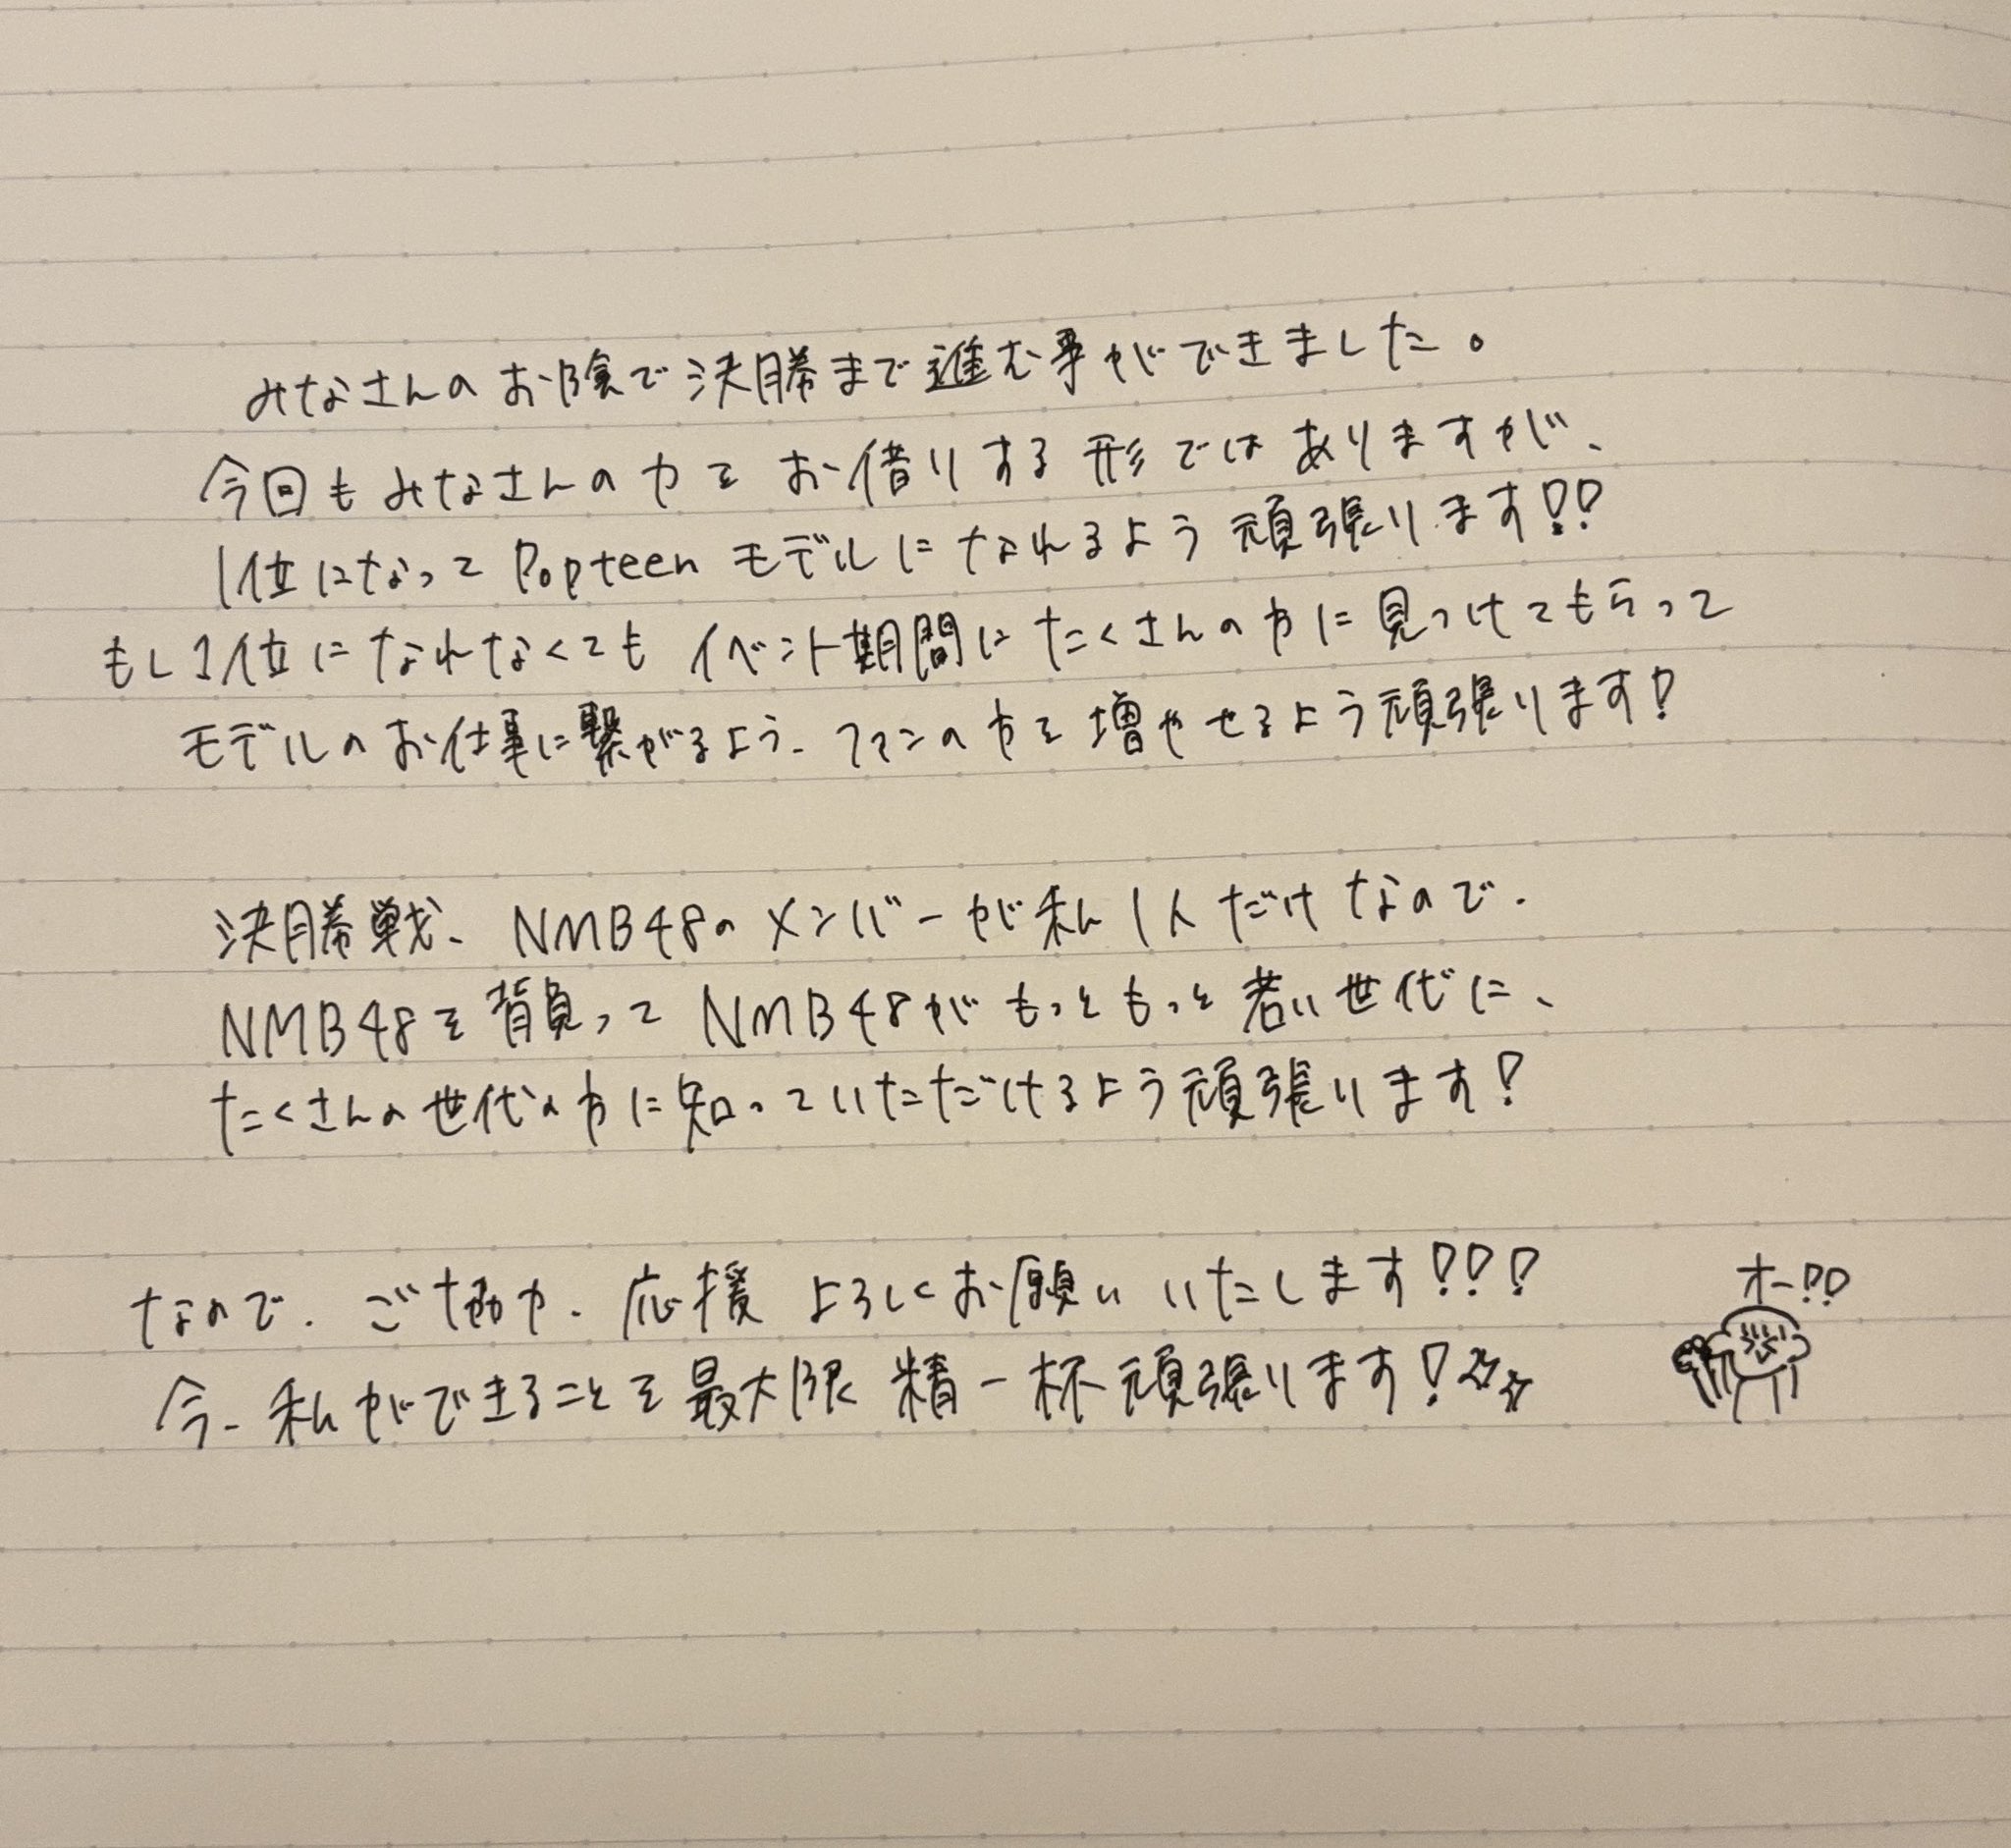 みなさんのお陰で決勝まで進む事ができました。
今回もみなさんの力をお借りする形ではありますが、
1位になってPopteenモデルになれるよう頑張ります!!
もし1位になれなくてもイベント期間にたくさんの方に見つけてもらって
モデルのお仕事に繋がるよう、ファンの方を増やせるよう頑張ります!
決勝戦、NMB48のメンバーが私1人だけなので、
NMB48を背負ってNMB48がもっともっと若い世代に、
たくさんの世代の方に知っていただけるよう頑張ります!
なので、ご協力、応援 よろしくお願いいたします!!!
オー!!
今、私ができることを最大限 精一杯頑張ります!☆☆